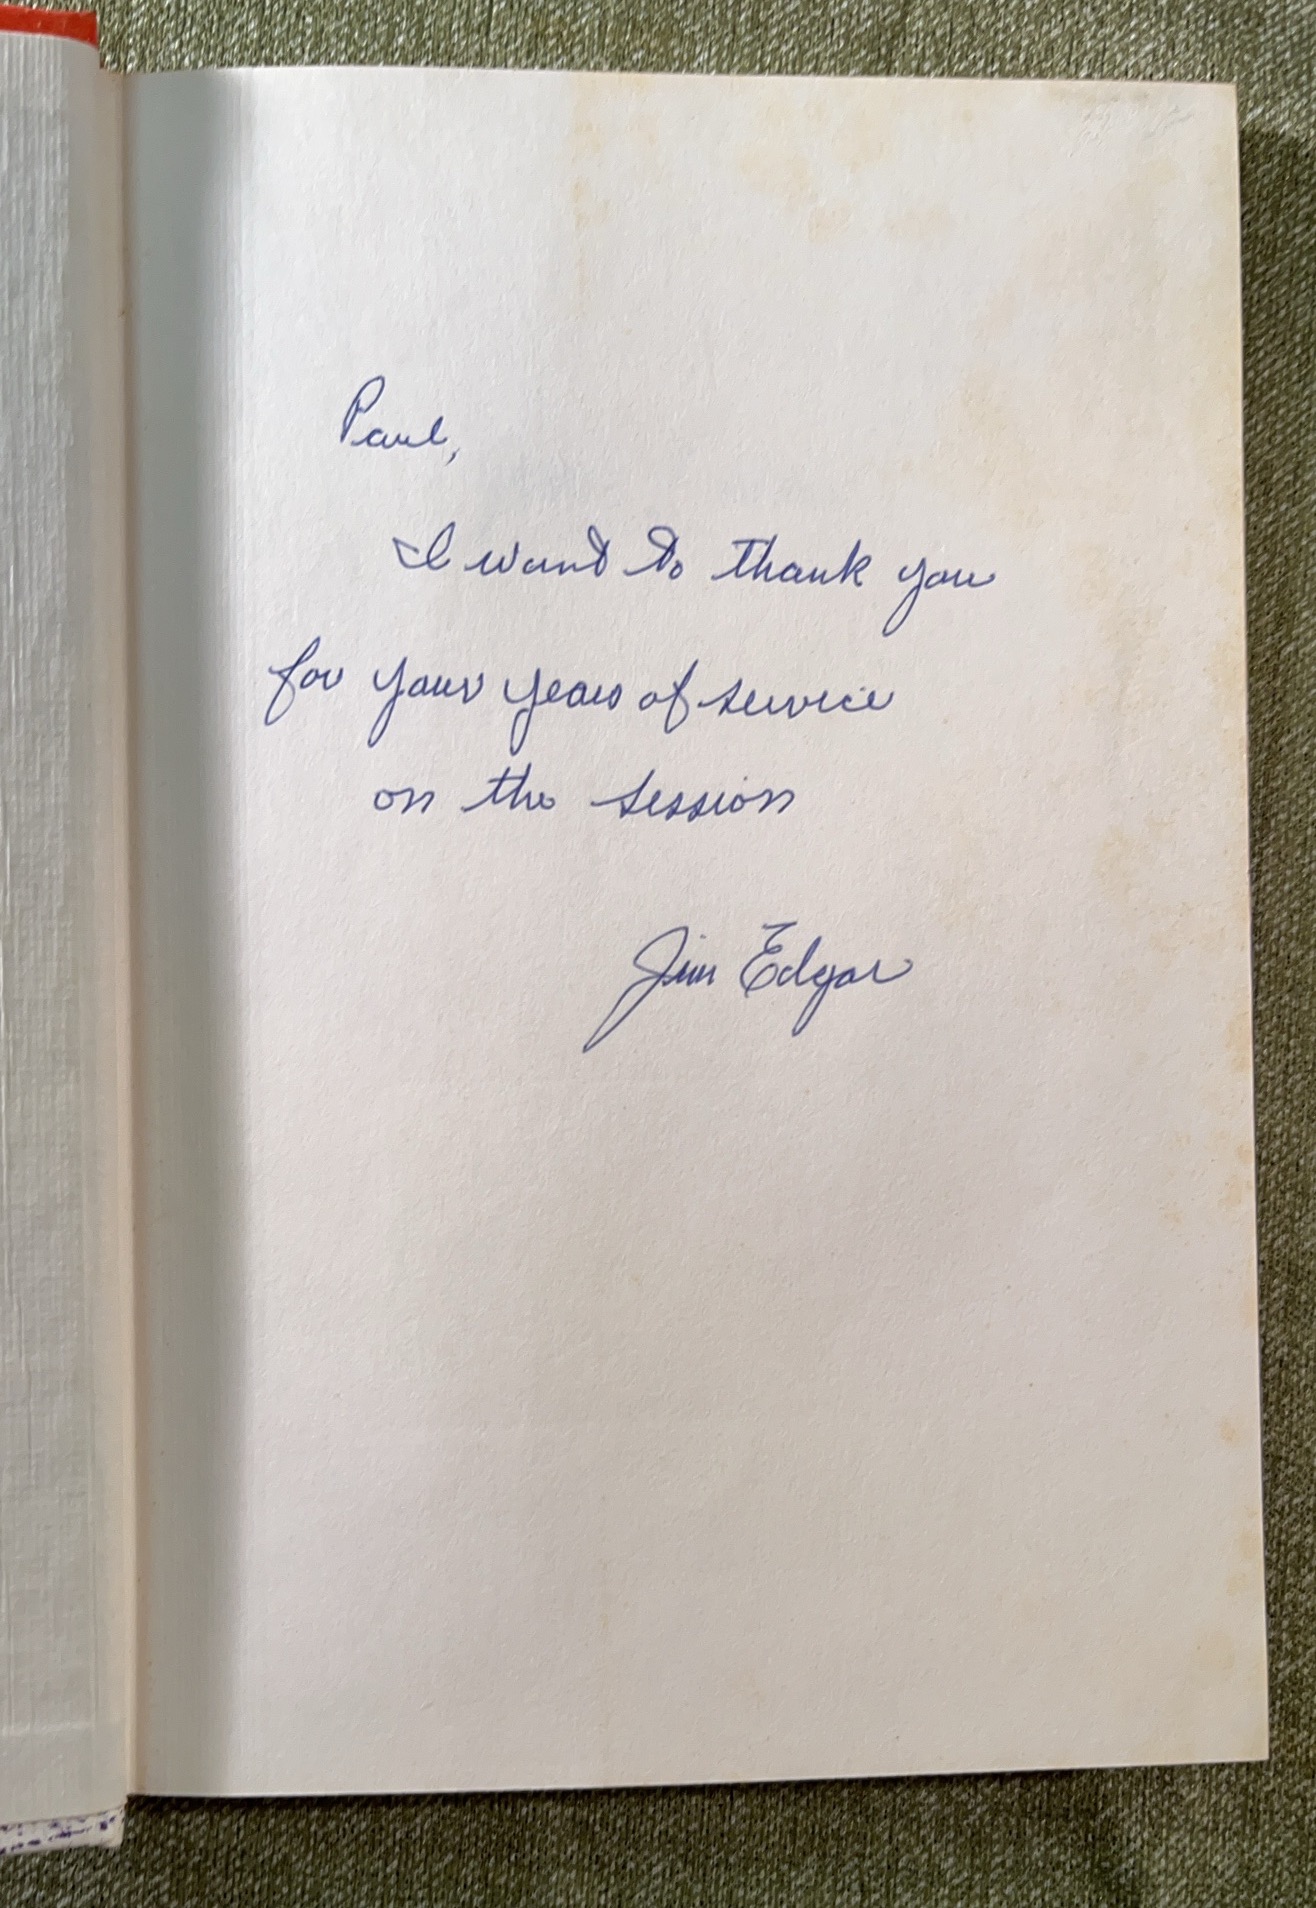 Paul,
I want to thank you
for your years of service
on the session
Jim Edgar